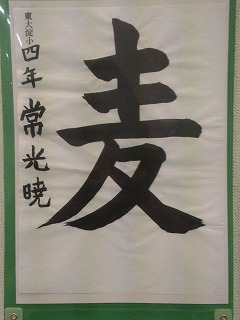 麦
東大淀小
四年 常光暁